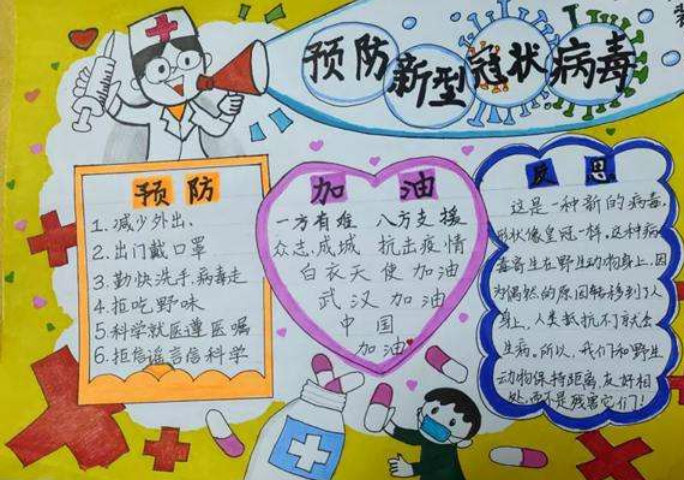 预防新型冠状病毒
预防
1.减少外出、
2.出门戴口罩
3.勤快洗手,病毒走
4.拒吃野味
5.科学就医遵医嘱
6.拒信谣言信科学
加油
一方有难 八方支援
众志成城 抗击疫情
白衣天使加油
武汉加油
中国
加油
反思
这是一种新的病毒,
形状像皇冠一样,这种病
毒寄生在野生动物身上,因
为偶然的原因转移到了人
身上,人类抵抗不了就会
生病。所以,我们和野生
动物保持距离,友好相
处,而不是残害它们!